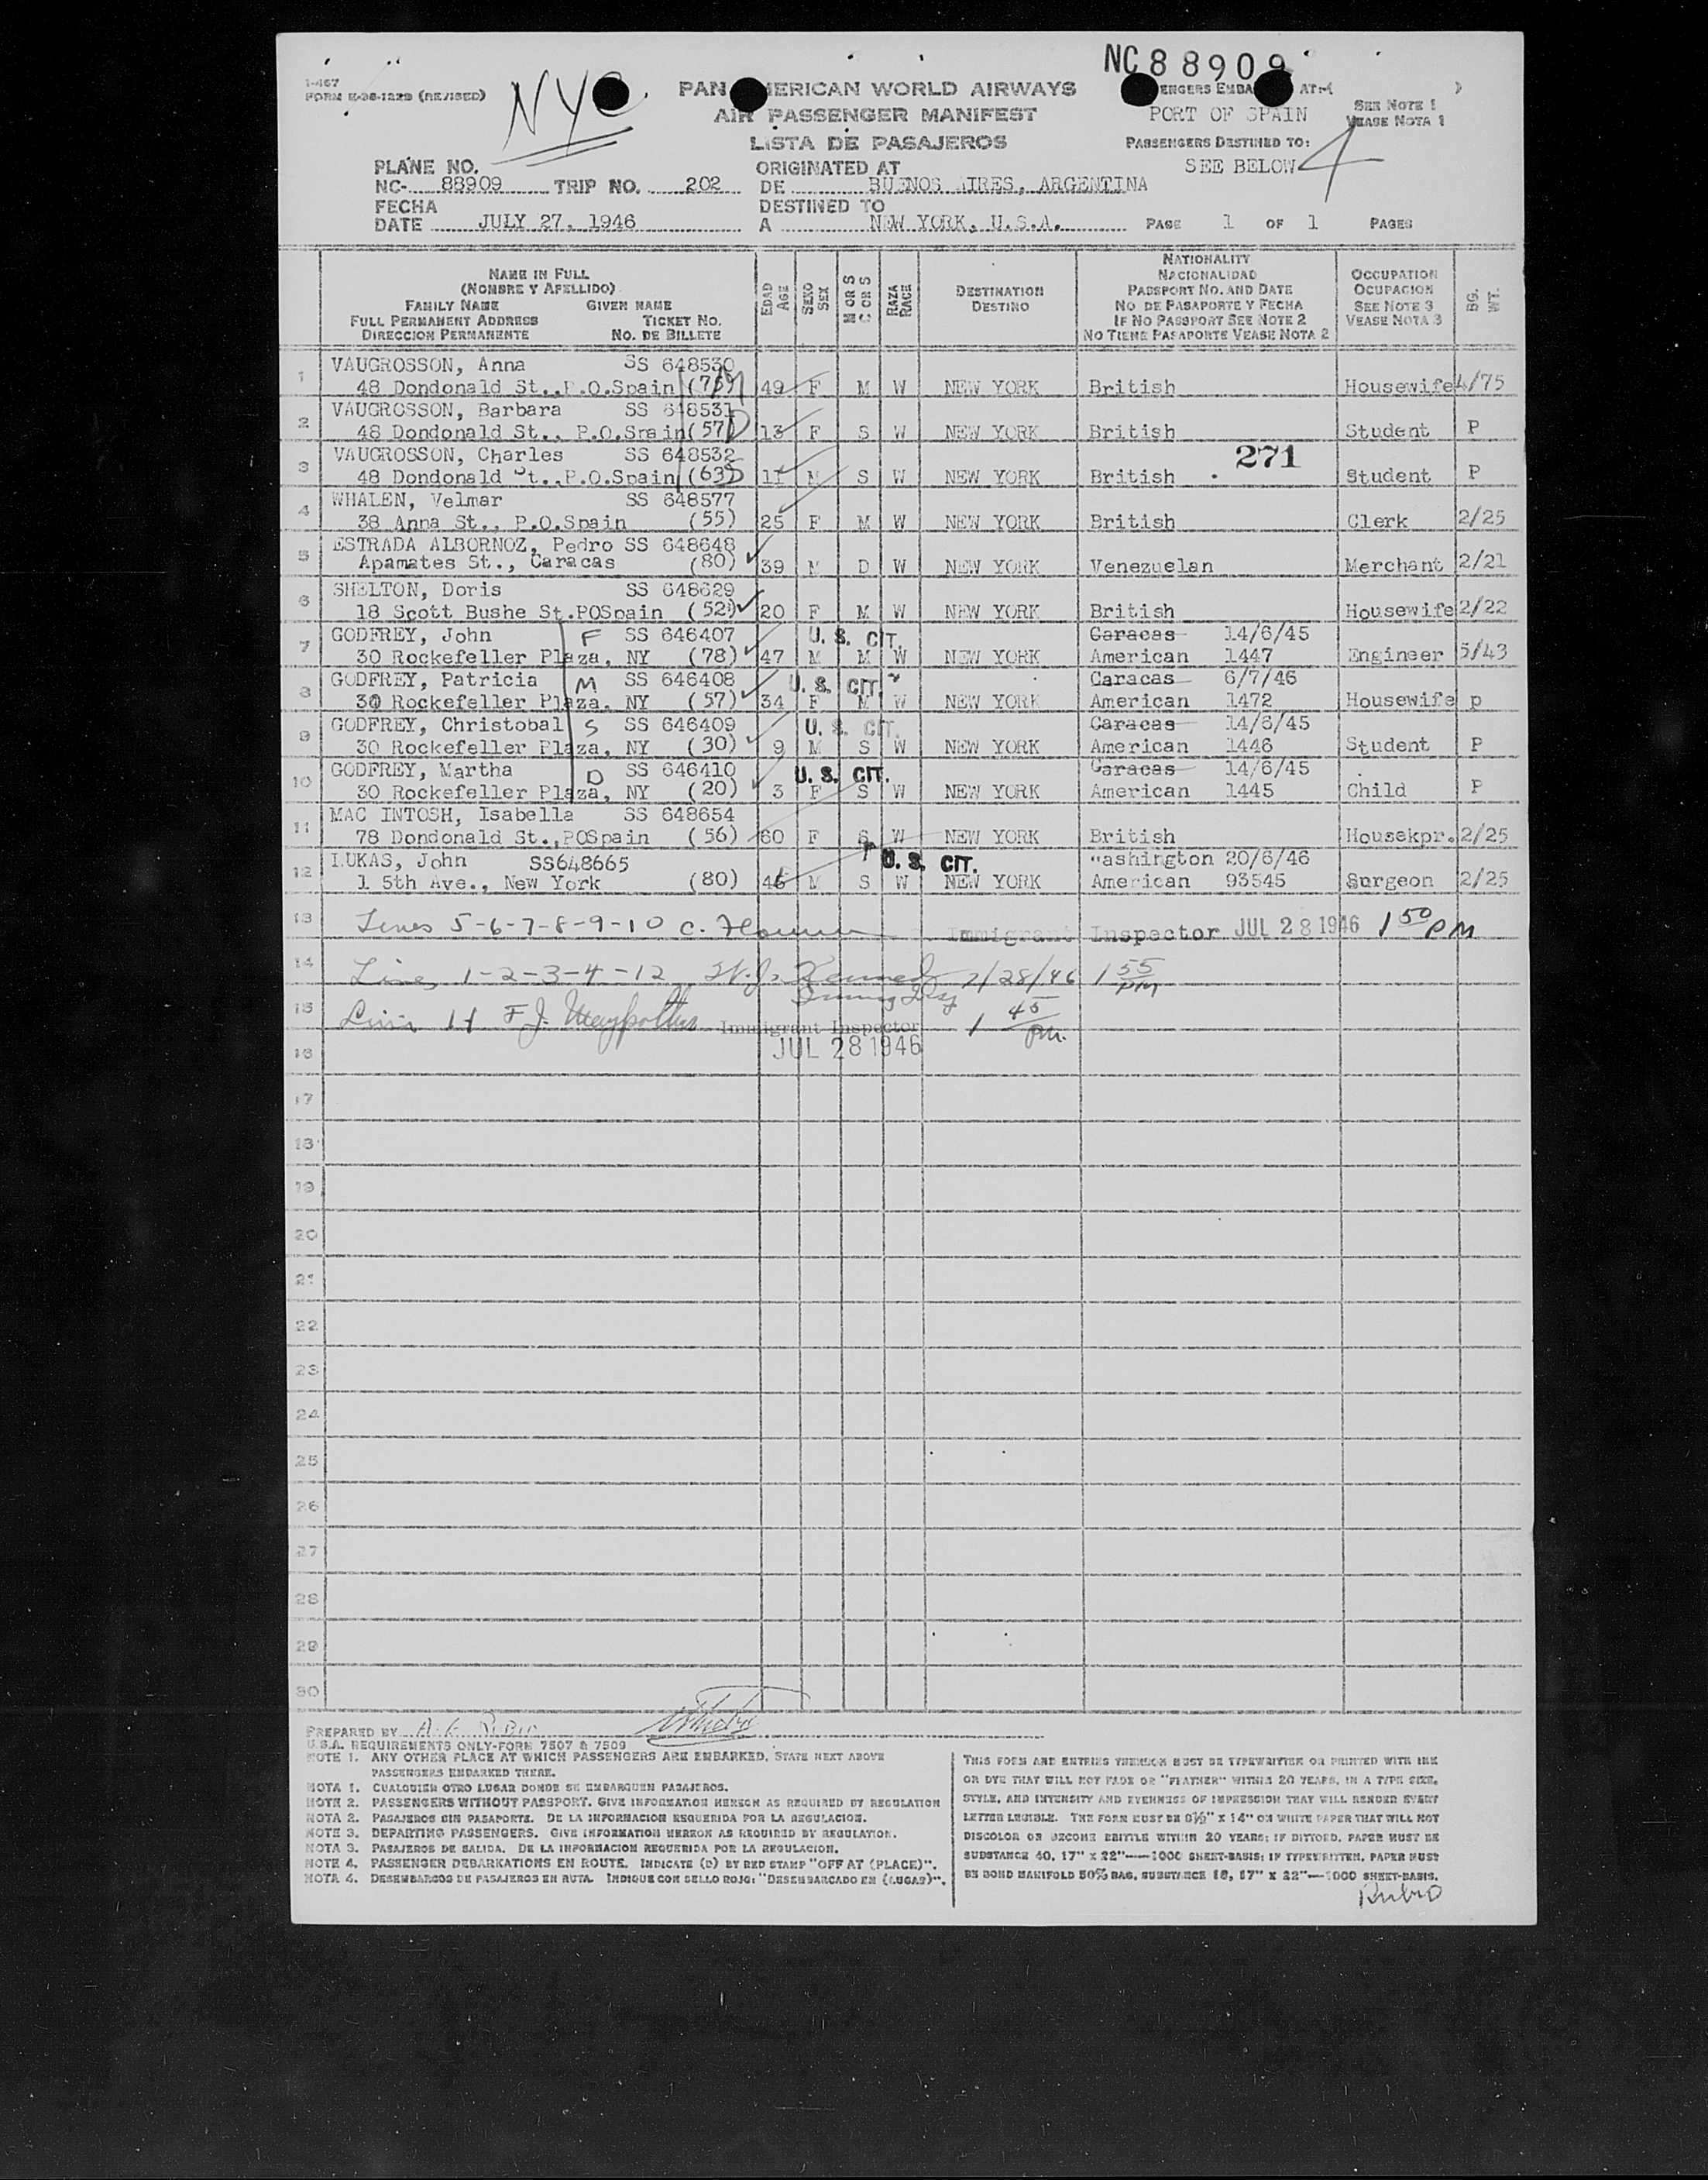 NC88909
I-467
FORM E-36-1229 (REVISED)
NYC
PAN AMERICAN WORLD AIRWAYS
AIR PASSENGER MANIFEST
LISTA DE PASAJEROS
PORT OF SPAIN
SEE NOTE 1
VEASE NOTA 1
PASSENGERS DESTINED TO:
SEE BELOW
4
PLANE NO.
NC- 88909 TRIP NO. 202
FECHA
DATE JULY 27, 1946
ORIGINATED AT
DE BUENOS AIRES, ARGENTINA
DESTINED TO
A NEW YORK, U.S.A.
PAGE 1 OF 1 PAGES
NAME IN FULL
(NOMBRE Y APELLIDO)
FAMILY NAME GIVEN NAME
FULL PERMANENT ADDRESS TICKET NO.
DIRECCION PERMANENTE NO. DE BILLETE
EDAD AGE
SEXO SEX
M OR S C OR S
RAZA RACE
DESTINATION
DESTINO
NATIONALITY
NACIONALIDAD
PASSPORT NO. AND DATE
NO DE PASAPORTE Y FECHA
IF NO PASSPORT SEE NOTE 2
NO TIENE PASAPORTE VEASE NOTA 2
OCCUPATION
OCUPACION
SEE NOTE 3
VEASE NOTA 3
BG. WT.
1 VAUGROSSON, Anna SS 648530
48 Dondonald St.,P.O.Spain 49 F M W NEW YORK British Housewife 4/75
2 VAUGROSSON, Barbara SS 648531
48 Dondonald St., P.O.Spain (57) D 13 F S W NEW YORK British Student P
271
3 VAUGROSSON, Charles SS 648532
48 Dondonald St.,P.O.Spain (63) S 11 M S W NEW YORK British Student P
4 WHALEN, Velmar SS 648577
38 Anna St., P.O.Spain (55) 25 F M W NEW YORK British Clerk 2/25
5 ESTRADA ALBORNOZ, Pedro SS 648648
Apamates St., Caracas (80) 39 M D W NEW YORK Venezuelan Merchant 2/21
6 SHELTON, Doris SS 648629
18 Scott Bushe St.POSpain (52) 20 F M W NEW YORK British Housewife 2/22
7 GODFREY, John F SS 646407 U. S. CIT. Caracas 14/6/45
30 Rockefeller Plaza, NY (78) 47 M M W NEW YORK American 1447 Engineer 5/43
8 GODFREY, Patricia M SS 646408 U. S. CIT. Caracas 6/7/46
30 Rockefeller Plaza, NY (57) 34 F M W NEW YORK American 1472 Housewife p
9 GODFREY, Christobal S SS 646409 U. S. CIT. Caracas 14/6/45
30 Rockefeller Plaza, NY (30) 9 M S W NEW YORK American 1446 Student P
10 GODFREY, Martha D SS 646410 U. S. CIT. Caracas 14/6/45
30 Rockefeller Plaza, NY (20) 3 F S W NEW YORK American 1445 Child P
11 MAC INTOSH, Isabella SS 648654
78 Dondonald St.,POSpain (56) 60 F S W NEW YORK British Housekpr. 2/25
12 LUKAS, John SS648665 U. S. CIT. Washington 20/6/46
1 5th Ave., New York (80) 46 M S W NEW YORK American 93545 Surgeon 2/25
13 Lines 5-6-7-8-9-10 C. Immigrant Inspector JUL 28 1946 1 50 PM
14 Lines 1-2-3-4-12 Kennedy 7/28/46 1 55 PM
15 Line 11 F. J. Immigrant Inspector 1 45 PM.
16 JUL 28 1946
17
18
19
20
21
22
23
24
25
26
27
28
29
30
PREPARED BY
U.S.A. REQUIREMENTS ONLY-FORM 7507 & 7509
NOTE 1. ANY OTHER PLACE AT WHICH PASSENGERS ARE EMBARKED, STATE NEXT ABOVE
PASSENGERS EMBARKED THERE.
NOTA 1. CUALQUIER OTRO LUGAR DONDE SE EMBARQUEN PASAJEROS.
NOTE 2. PASSENGERS WITHOUT PASSPORT. GIVE INFORMATION HEREON AS REQUIRED BY REGULATION
NOTA 2. PASAJEROS SIN PASAPORTE. DE LA INFORMACION REQUERIDA POR LA REGULACION.
NOTE 3. DEPARTING PASSENGERS. GIVE INFORMATION HEREON AS REQUIRED BY REGULATION.
NOTA 3. PASAJEROS DE SALIDA. DE LA INFORMACION REQUERIDA POR LA REGULACION.
NOTE 4. PASSENGER DEBARKATIONS EN ROUTE. INDICATE (D) BY RED STAMP "OFF AT (PLACE)".
NOTA 4. DESEMBARCOS DE PASAJEROS EN RUTA. INDIQUE CON SELLO ROJO: "DESEMBARCADO EN (LUGAR)".
THIS FORM AND ENTRIES THEREON MUST BE TYPEWRITTEN OR PRINTED WITH INK
OR DYE THAT WILL NOT FADE OR "FEATHER" WITHIN 20 YEARS, IN A TYPE SIZE,
STYLE, AND INTENSITY AND EVENNESS OF IMPRESSION THAT WILL RENDER EVERY
LETTER LEGIBLE. THE FORM MUST BE 8½" X 14" ON WHITE PAPER THAT WILL NOT
DISCOLOR OR BECOME BRITTLE WITHIN 20 YEARS; IF DITTOED, PAPER MUST BE
SUBSTANCE 40, 17" X 22"—1000 SHEET-BASIS; IF TYPEWRITTEN, PAPER MUST
BE BOND MANIFOLD 50% RAG, SUBSTANCE 18, 17" X 22"—1000 SHEET-BASIS.
Rubio